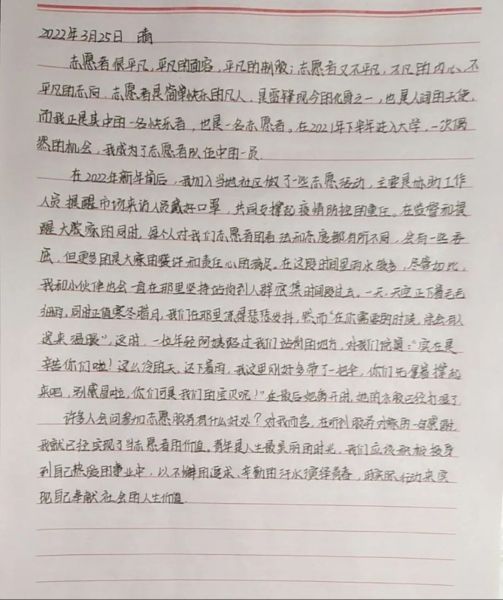 2022年3月25日 晴
志愿者很平凡，平凡的面容，平凡的制服；志愿者又不平凡，不凡的内心，不
平凡的志向，志愿者是简单快乐的凡人，是雷锋现今的化身之一，也是人间的天使，
而我正是其中的一名快乐者，也是一名志愿者。在2021年下半年进入大学，一次偶
然的机会，我成为了志愿者队伍中的一员.
在2022年新年前后，我加入当地社区做了一些志愿活动，主要是协助工作
人员提醒市场来访人员戴好口罩，共同支撑起疫情防控的重任。在监督和提
醒大众的同时，每个人对我们志愿者的看法和态度都有所不同，会有一些委
屈，但更多的是大家的责任和责任心的满足。在这段时间里雨水颇多，尽管如此，
我和小伙伴也会一直在那里坚持站岗到人群密集时间段过去。一天，天空正下着毛毛
细雨，同时正值寒冬腊月，我们在那里冻得瑟瑟发抖，然而“在你需要的时候，总会有人
送来温暖”，这时，一位年轻阿姨路过我们站岗的地方，对我们说道：“实在是
辛苦你们啦！这么冷的天，还下着雨，我这里刚好多带了一把伞，你们先拿着撑起
来吧，别感冒啦，你们可是我们的宝贝呢！”在最后她离开时，她的衣服已经打湿了
许多人会问参加志愿服务有什么好处？对我而言，在听到服务对象的一句感谢，
我就已经实现了当志愿者的价值。青年是人生最美丽的时光，我们应该积极投身
到自己热爱的事业中，以不懈的追求，辛勤的汗水演绎青春，用实际行动来实
现自己奉献社会的人生价值.